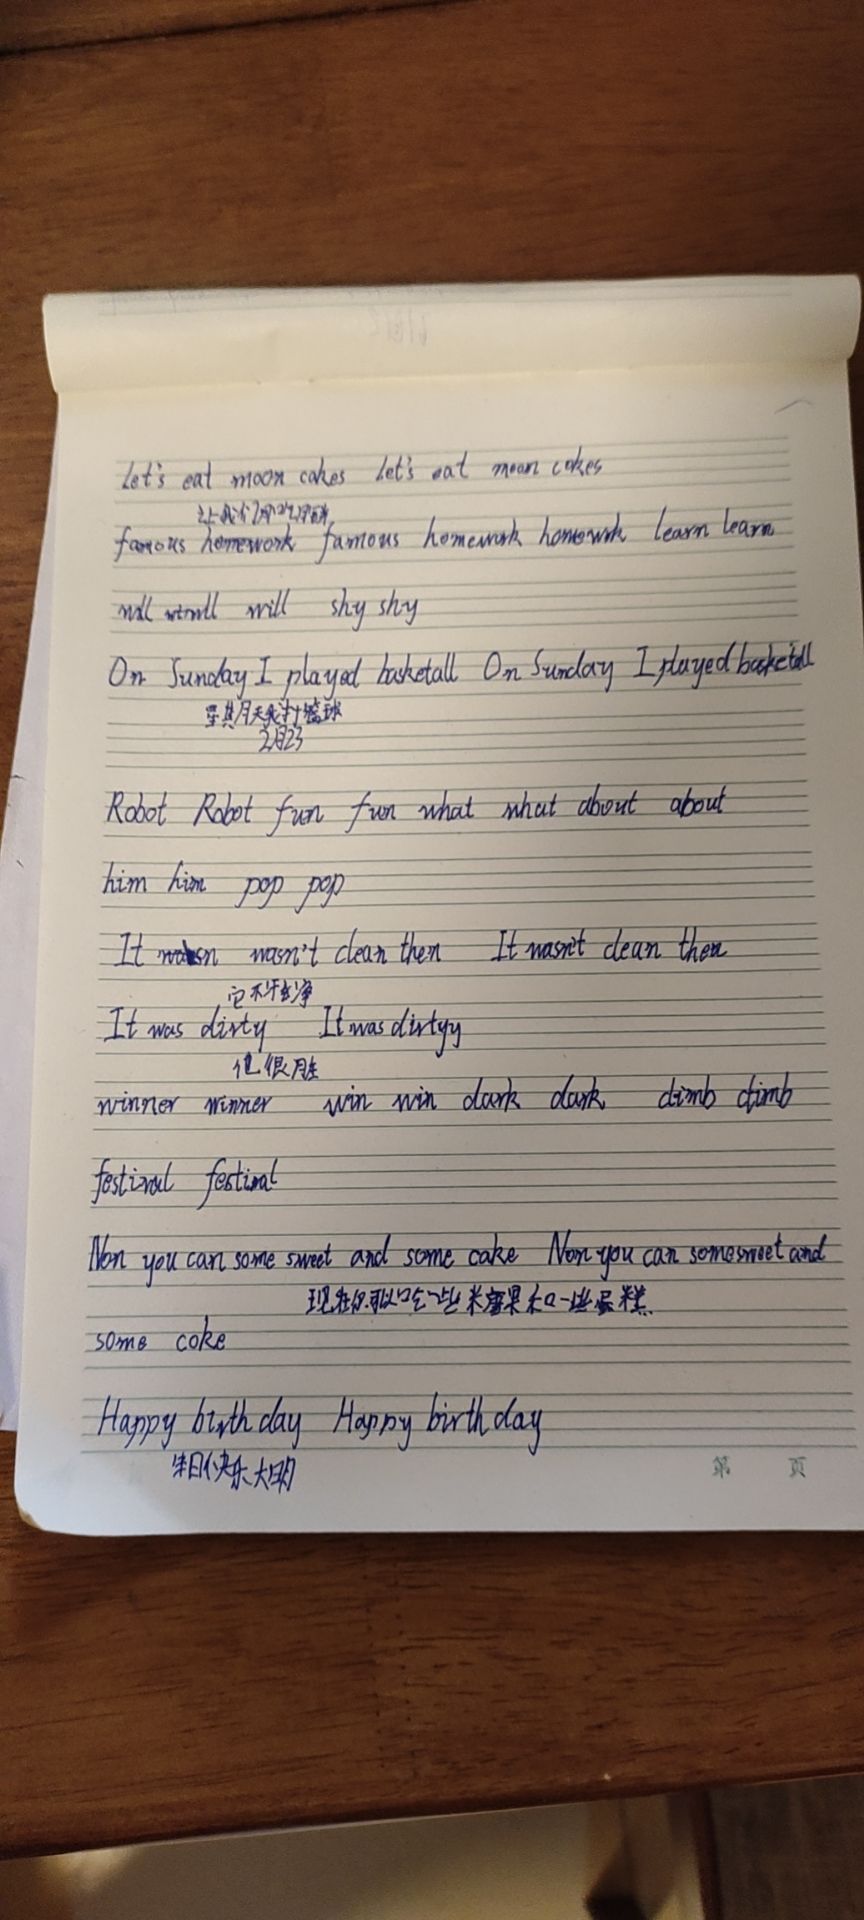 Let's eat moon cakes Let's eat moon cakes
让我们
famous homework famous homework homework learn learn
will will shy shy
On Sunday I played basketall On Sunday I played basketall
星其月天我打篮球
2月23
Robot Robot fun fun what what about about
him him pop pop
It wasn wasn't clean then It wasn't clean then
它不干净
It was dirty It was dirtyy
也很
winner winner win win dark dark climb climb
festival festival
Now you can some sweet and some cake Now you can some sweet and
现在你可以吃一些米糖果和一些蛋糕
some coke
Happy birthday Happy birthday
生日快乐大明
第 页